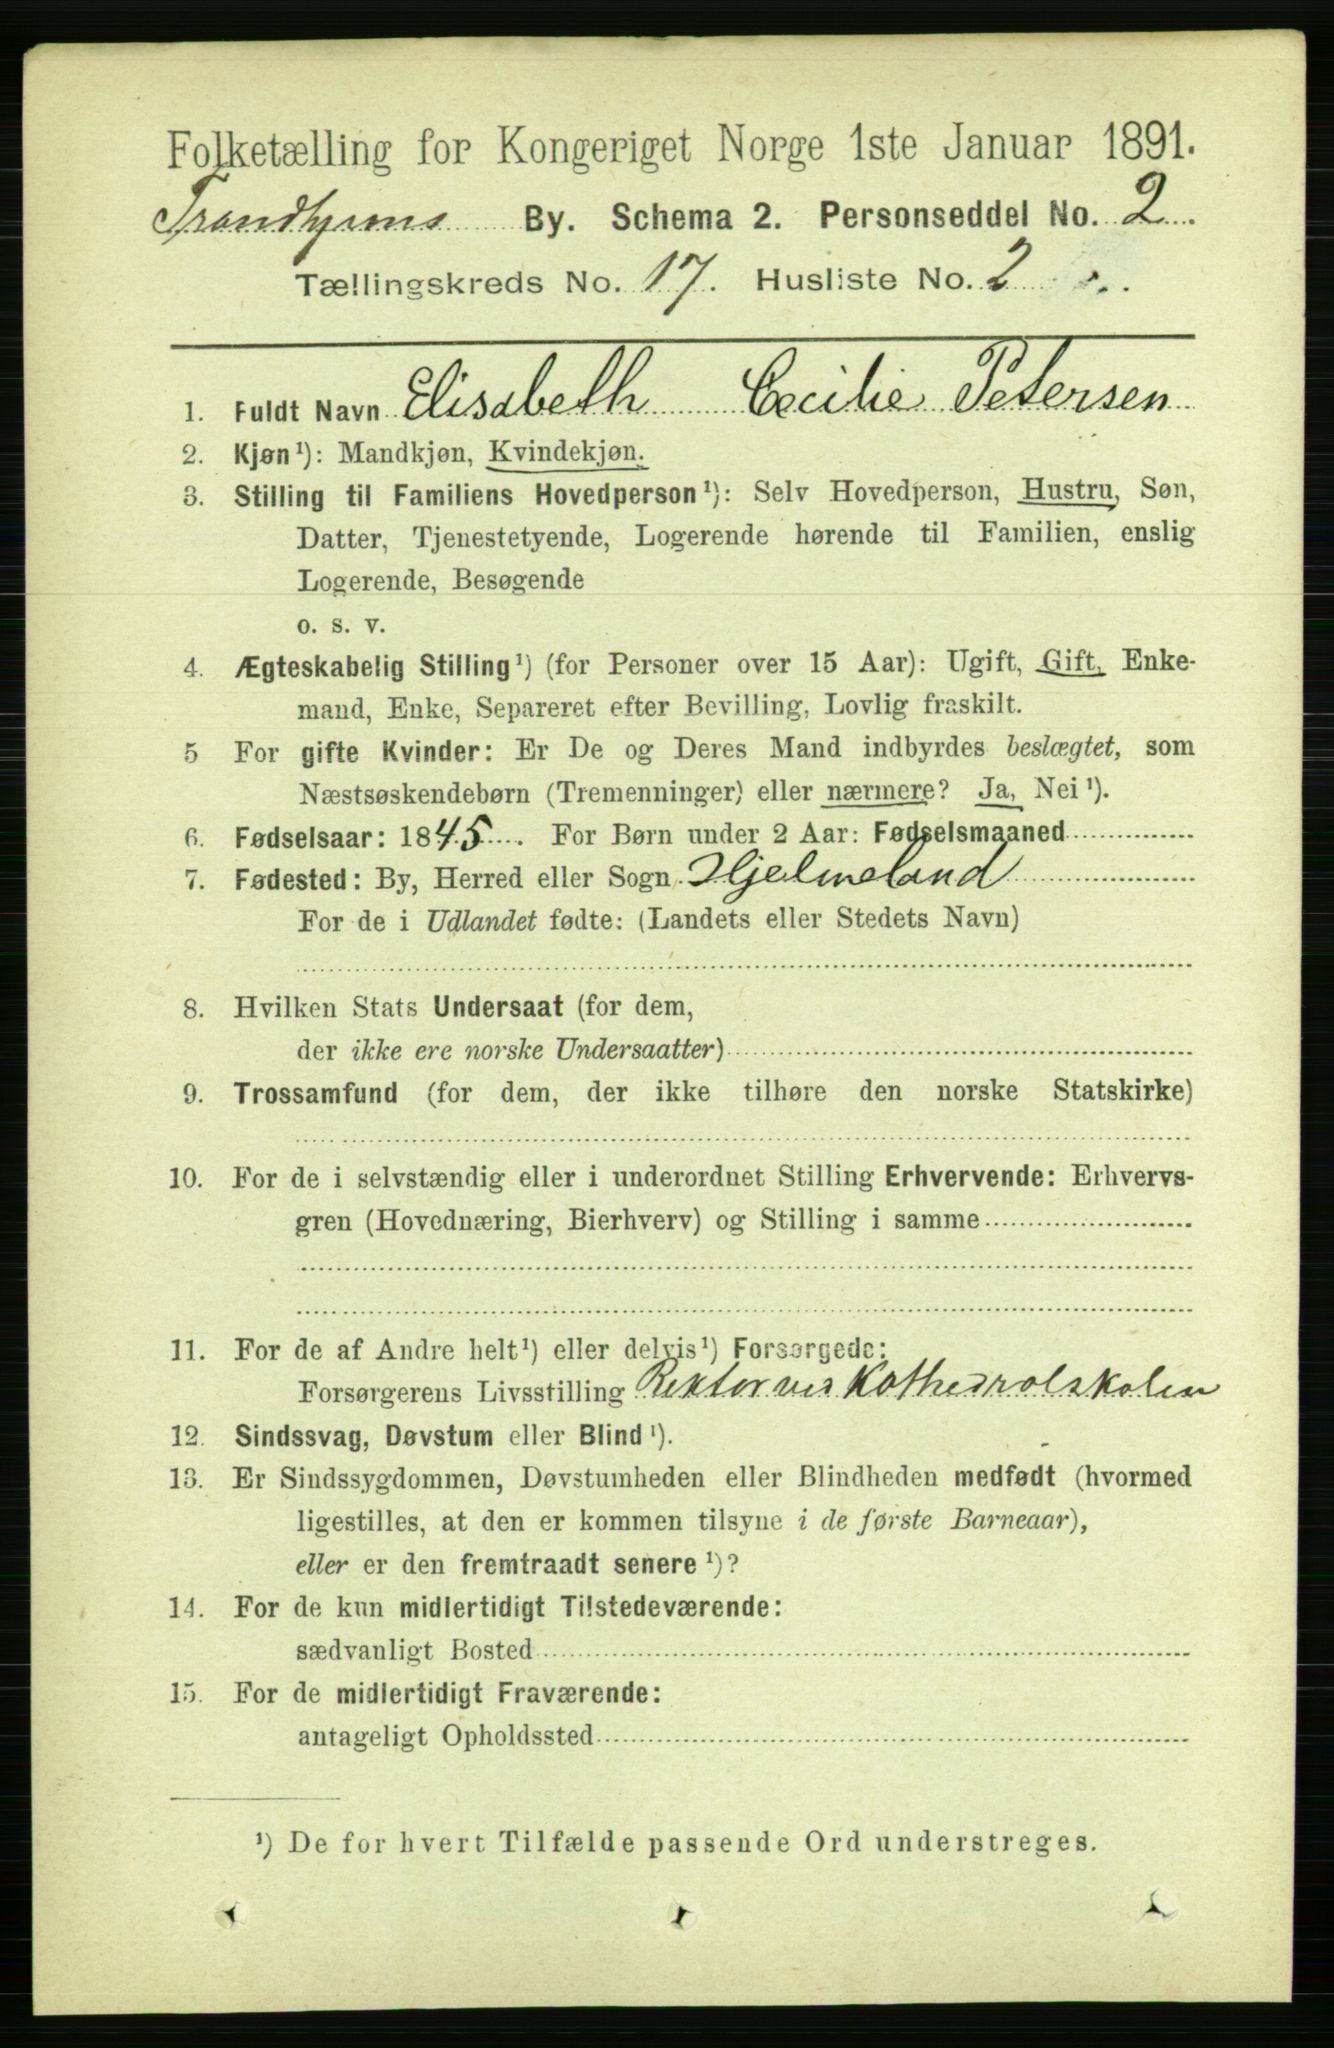 Folketælling for Kongeriget Norge 1ste Januar 1891.
Trondhjems By. Schema 2. Personseddel No. 2
Tællingskreds No. 17. Husliste No. 2
1. Fuldt Navn Elisabeth Cecilie Petersen
2. Kjøn¹): Mandkjøn, Kvindekjøn.
3. Stilling til Familiens Hovedperson¹): Selv Hovedperson, Hustru, Søn,
Datter, Tjenestetyende, Logerende hørende til Familien, enslig
Logerende, Besøgende
o. s. v.
4. Ægteskabelig Stilling¹) (for Personer over 15 Aar): Ugift, Gift, Enke-
mand, Enke, Separeret efter Bevilling, Lovlig fraskilt.
5 For gifte Kvinder: Er De og Deres Mand indbyrdes beslægtet, som
Næstsøskendebørn (Tremenninger) eller nærmere? Ja, Nei¹).
6. Fødselsaar: 1845. For Børn under 2 Aar: Fødselsmaaned
7. Fødested: By, Herred eller Sogn Hjelmeland
For de i Udlandet fødte: (Landets eller Stedets Navn)
8. Hvilken Stats Undersaat (for dem,
der ikke ere norske Undersaatter)
9. Trossamfund (for dem, der ikke tilhøre den norske Statskirke)
10. For de i selvstændig eller i underordnet Stilling Erhvervende: Erhvervs-
gren (Hovednæring, Bierhverv) og Stilling i samme
11. For de af Andre helt¹) eller delvis¹) Forsørgede:
Forsørgerens Livsstilling Rektor ved Kathedralskolen
12. Sindssvag, Døvstum eller Blind¹).
13. Er Sindssygdommen, Døvstumheden eller Blindheden medfødt (hvormed
ligestilles, at den er kommen tilsyne i de første Barneaar),
eller er den fremtraadt senere¹)?
14. For de kun midlertidigt Tilstedeværende:
sædvanligt Bosted
15. For de midlertidigt Fraværende:
antageligt Opholdssted
¹) De for hvert Tilfælde passende Ord understreges.